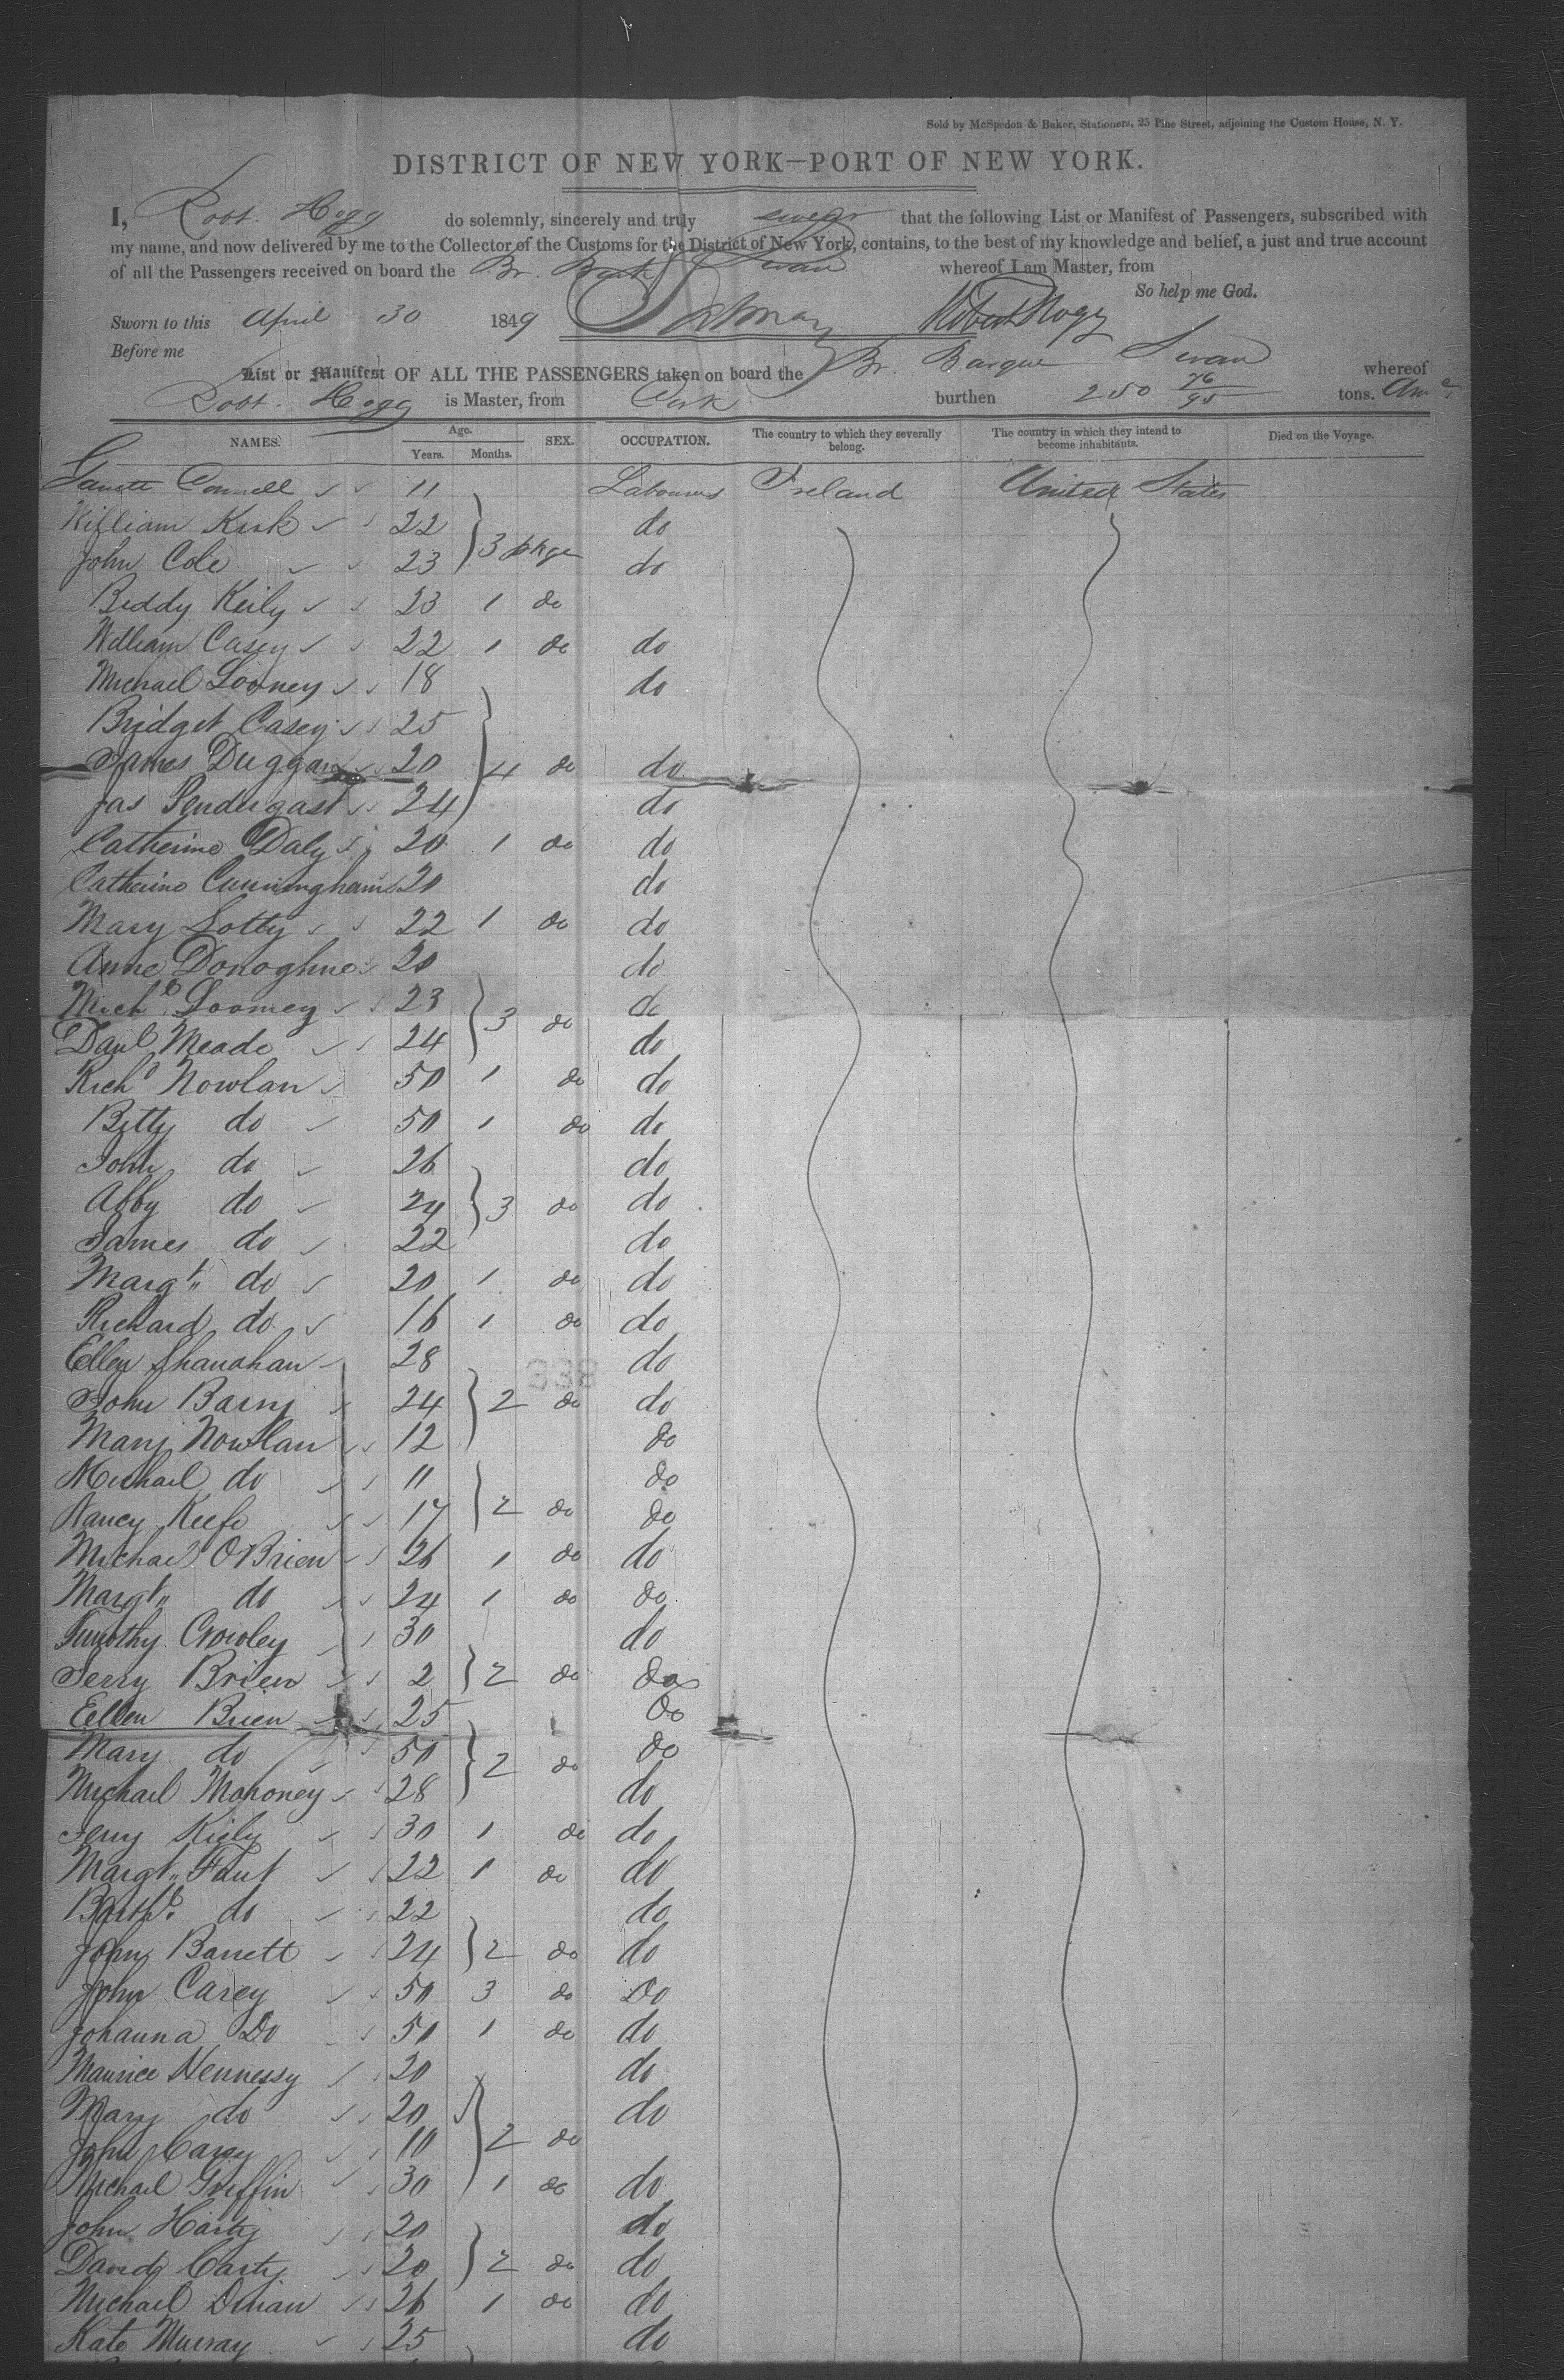 Sold by McSpedon & Baker, Stationers, 25 Pine Street, adjoining the Custom House, N. Y.
DISTRICT OF NEW YORK—PORT OF NEW YORK.
I, Robt. Hogg do solemnly, sincerely and truly swear that the following List or Manifest of Passengers, subscribed with
my name, and now delivered by me to the Collector of the Customs for the District of New York, contains, to the best of my knowledge and belief, a just and true account
of all the Passengers received on board the Br. Bark Swan whereof I am Master, from
So help me God.
Sworn to this April 30 1849 Robert Hogg
Before me
List or Manifest OF ALL THE PASSENGERS taken on board the Br. Barque Swan whereof
Robt. Hogg is Master, from Cork burthen 250 76/95 tons.
NAMES. Age. Years. Months. SEX. OCCUPATION. The country to which they severally belong. The country in which they intend to become inhabitants. Died on the Voyage.
Connell 11 Labourers Ireland United States
William Kirk 22 do
John Cole 23 3 pkge do
Biddy Keily 23 1 do
William Casey 22 1 do do
Michael Looney 18 do
Bridget Casey 25
James Duggan 20 4 do do
Jas Pendergast 24 do
Catherine Daly 20 1 do do
Catherine Cunningham 20 do
Mary Lotty 22 1 do do
Anne Donoghue 20 do
Michl Loomey 23 do
Danl Meade 24 3 do do
Richd Nowlan 50 1 do do
Betty do 50 1 do do
John do 26 do
Abby do 24 3 do do
James do 22 do
Margt do 20 1 do do
Richard do 16 1 do do
Ellen Shanahan 28 do
John Barry 24 2 do do
Mary Nowlan 12 do
Michael do 11 do
Nancy Keefe 17 2 do do
Michael OBrien 26 1 do do
Margt do 24 1 do do
Timothy Crowley 30 do
Jerry Brien 2 2 do do
Ellen Brien 25 do
Mary do 50 do
Michael Mahoney 28 2 do do
Jerry Kiely 30 1 do do
Margt 22 1 do do
do 22 do
John Barrett 24 2 do do
John Carey 50 3 do Do
Johanna Do 50 1 do do
Maurice Hennessy 20 do
Mary do 20 do
John Carey 10 2 do
Michael Griffin 30 1 do do
John Harty 20 do
David Carty 20 2 do do
Michael Dinan 26 1 do do
Kate Murray 25 do